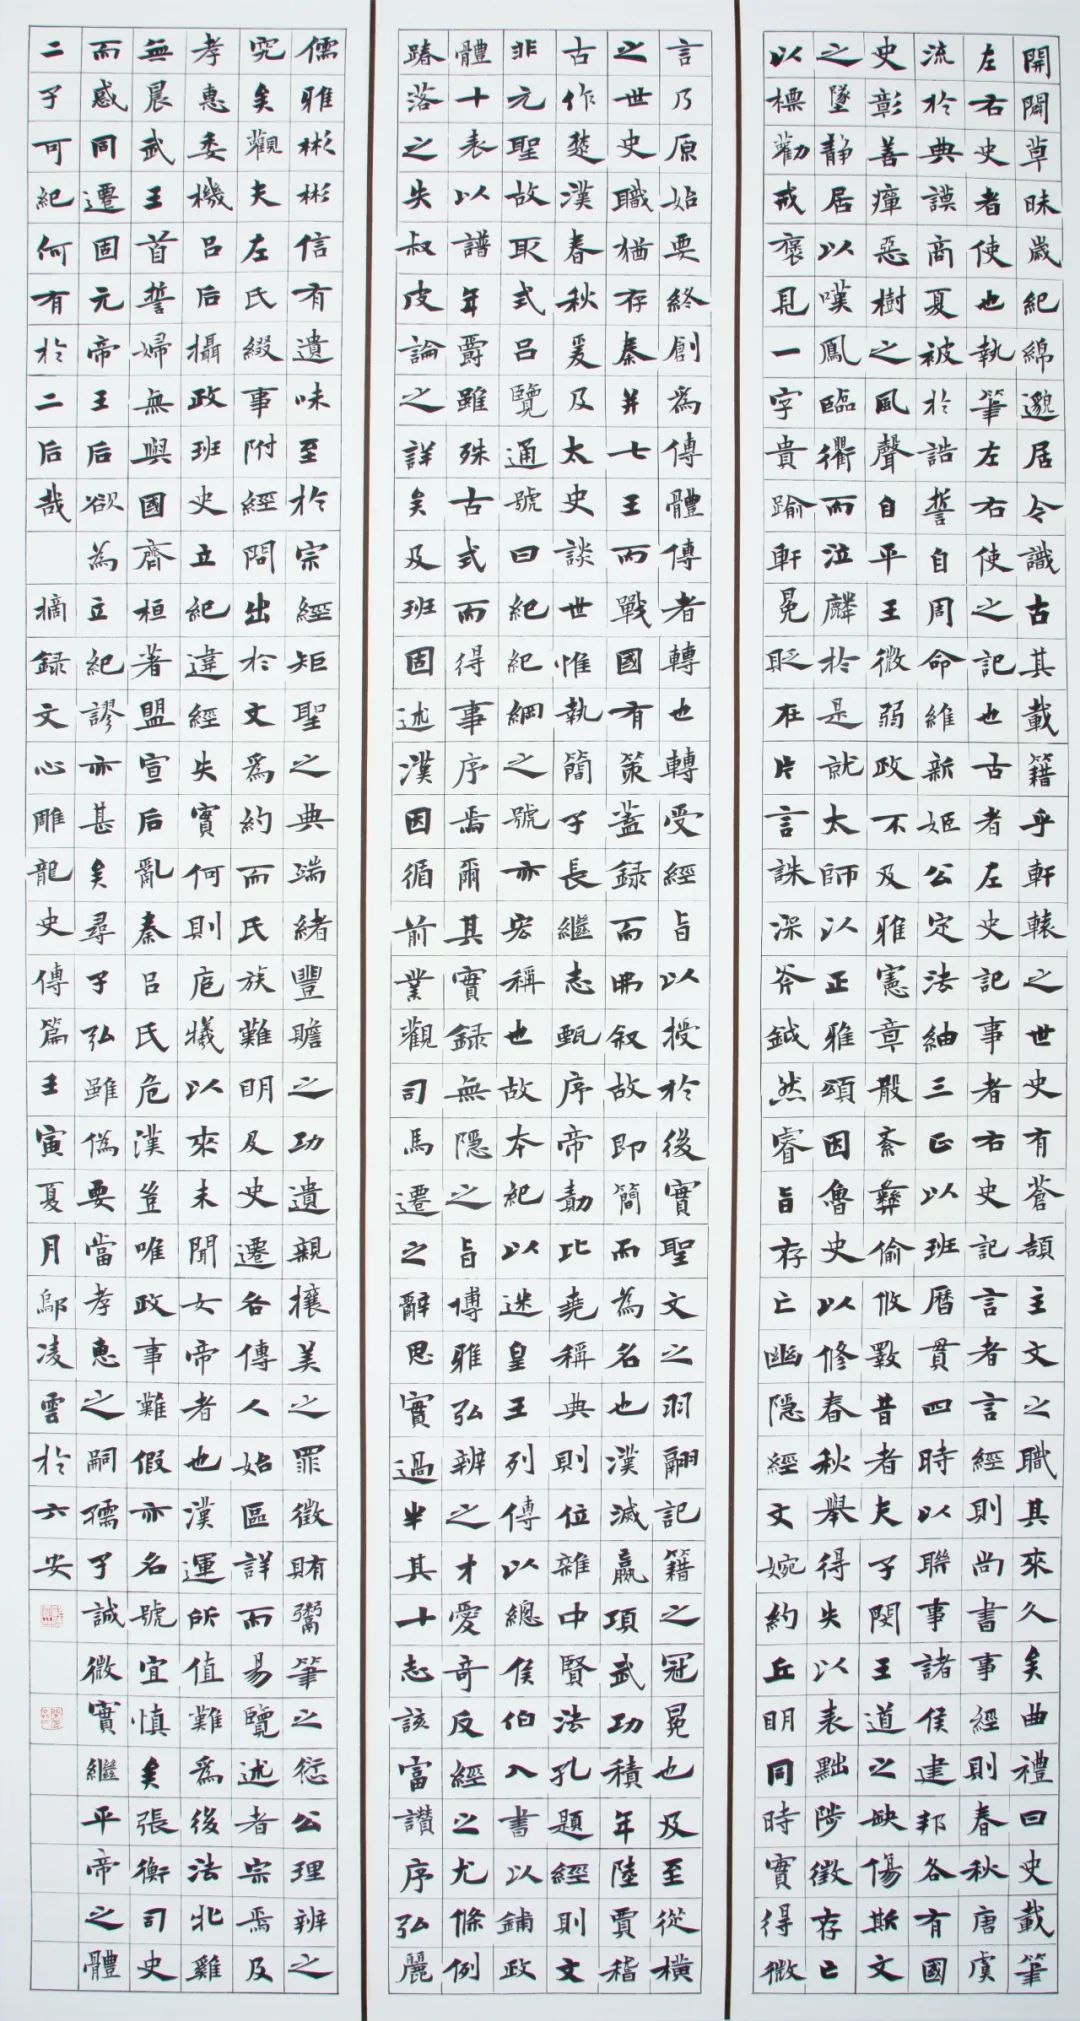 開闢草昧歲紀綿邈居今識古其載籍乎軒轅之世史有蒼頡主文之職其來久矣曲禮曰史載筆
左右史者使也執筆左右使之記也古者左史記事者右史記言者言經則尚書事經則春秋唐虞
流於典謨商夏被於誥誓自周命維新姬公定法紬三正以班曆貫四時以聯事諸侯建邦各有國
史彰善癉惡樹之風聲自平王微弱政不及雅憲章散紊彝倫攸斁昔者夫子閔王道之缺傷斯文
之墜靜居以嘆鳳臨衢而泣麟於是就太師以正雅頌因魯史以修春秋舉得失以表黜陟徵存亡
以標勸戒褒見一字貴踰軒冕貶在片言誅深斧鉞然睿旨存亡幽隱經文婉約丘明同時實得微
言乃原始要終創為傳體傳者轉也轉受經旨以授於後實聖文之羽翮記籍之冠冕也及至從橫
之世史職猶存秦并七王而戰國有策蓋錄而弗叙故即簡而為名也漢滅嬴項武功積年陸賈稽
古作楚漢春秋爰及太史談世惟執簡子長繼志甄序帝勣比堯稱典則位雜中賢法孔題經則文
非元聖故取式呂覽通號曰紀紀綱之號亦宏稱也故本紀以述皇王列傳以總侯伯八書以鋪政
體十表以譜年爵雖殊古式而得事序焉爾其實錄無隱之旨博雅弘辨之才愛奇反經之尤條例
踳落之失叔皮論之詳矣及班固述漢因循前業觀司馬遷之辭思實過半其十志該富讚序弘麗
儒雅彬彬信有遺味至於宗經矩聖之典端緒豐贍之功遺親攘美之罪徵賄鬻筆之愆公理辨之
究矣觀夫左氏綴事附經間出於文為約而氏族難明及史遷各傳人始區詳而易覽述者宗焉及
孝惠委機呂后攝政班史立紀違經失實何則庖犧以來未聞女帝者也漢運所值難為後法牝雞
無晨武王首誓婦無與國齊桓著盟宣后亂秦呂氏危漢豈唯政事難假亦名號宜慎矣張衡司史
而惑同遷固元帝王后欲為立紀謬亦甚矣尋子弘雖偽要當孝惠之嗣孺子誠微實繼平帝之體
二子可紀何有於二后哉 摘錄文心雕龍史傳篇壬寅夏月鄔凌雲於六安